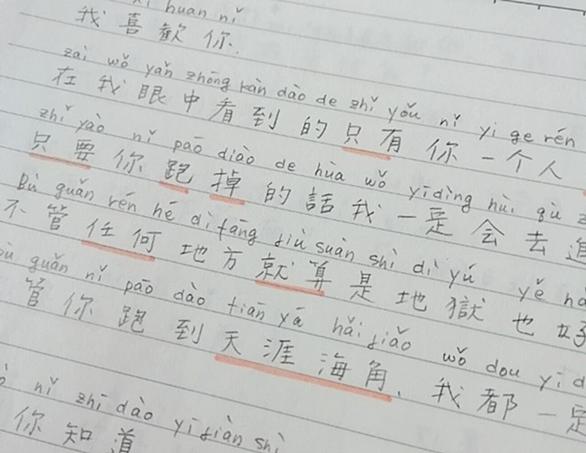 huan nǐ
我喜歡你.
zài wǒ yǎn zhōng kàn dào de zhǐ yǒu nǐ yí ge rén
在我眼中看到的只有你一个人
zhǐ yào nǐ pǎo diào de huà wǒ yīdìng huì qù
只要你跑掉的話我一定会去追
Bù guǎn rén hé dì fāng jiù suàn shì dì yù yě hǎ
不管任何地方就算是地獄也好
guǎn nǐ pǎo dào tiān yá hǎi jiǎo wǒ dou yī d
管你跑到天涯海角、我都一定
nǐ zhī dào yī jiàn shì
你知道